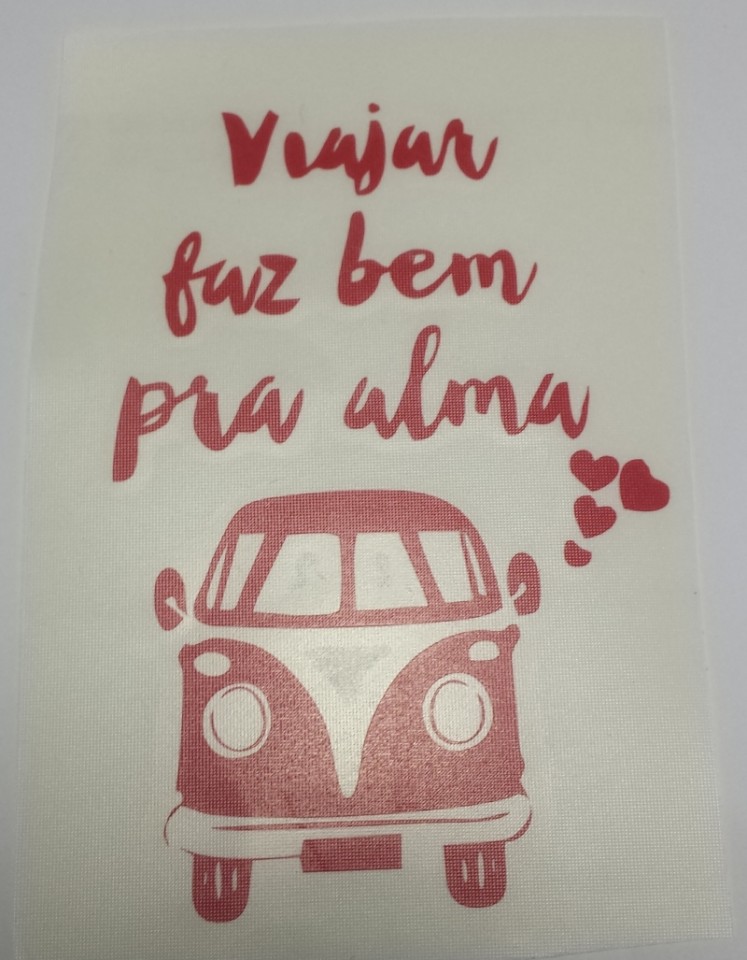 Viajar
faz bem
pra alma